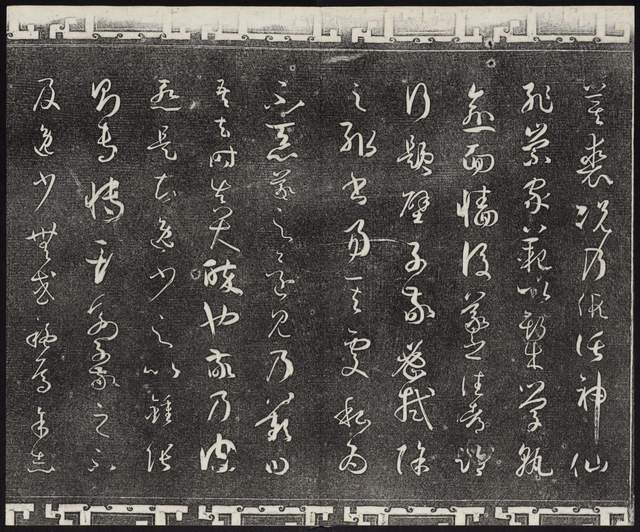 箕裘況乃假託神仙
恥崇家範以斯成學孰
愈面墻後羲之往都臨
行題壁子敬密拭除
之輒書易其處私為
不惡羲之還見乃歎曰
吾去時真大醉也敬乃內
慙是知逸少之比鍾張
則專博斯別子敬之不
及逸少無或疑焉余志